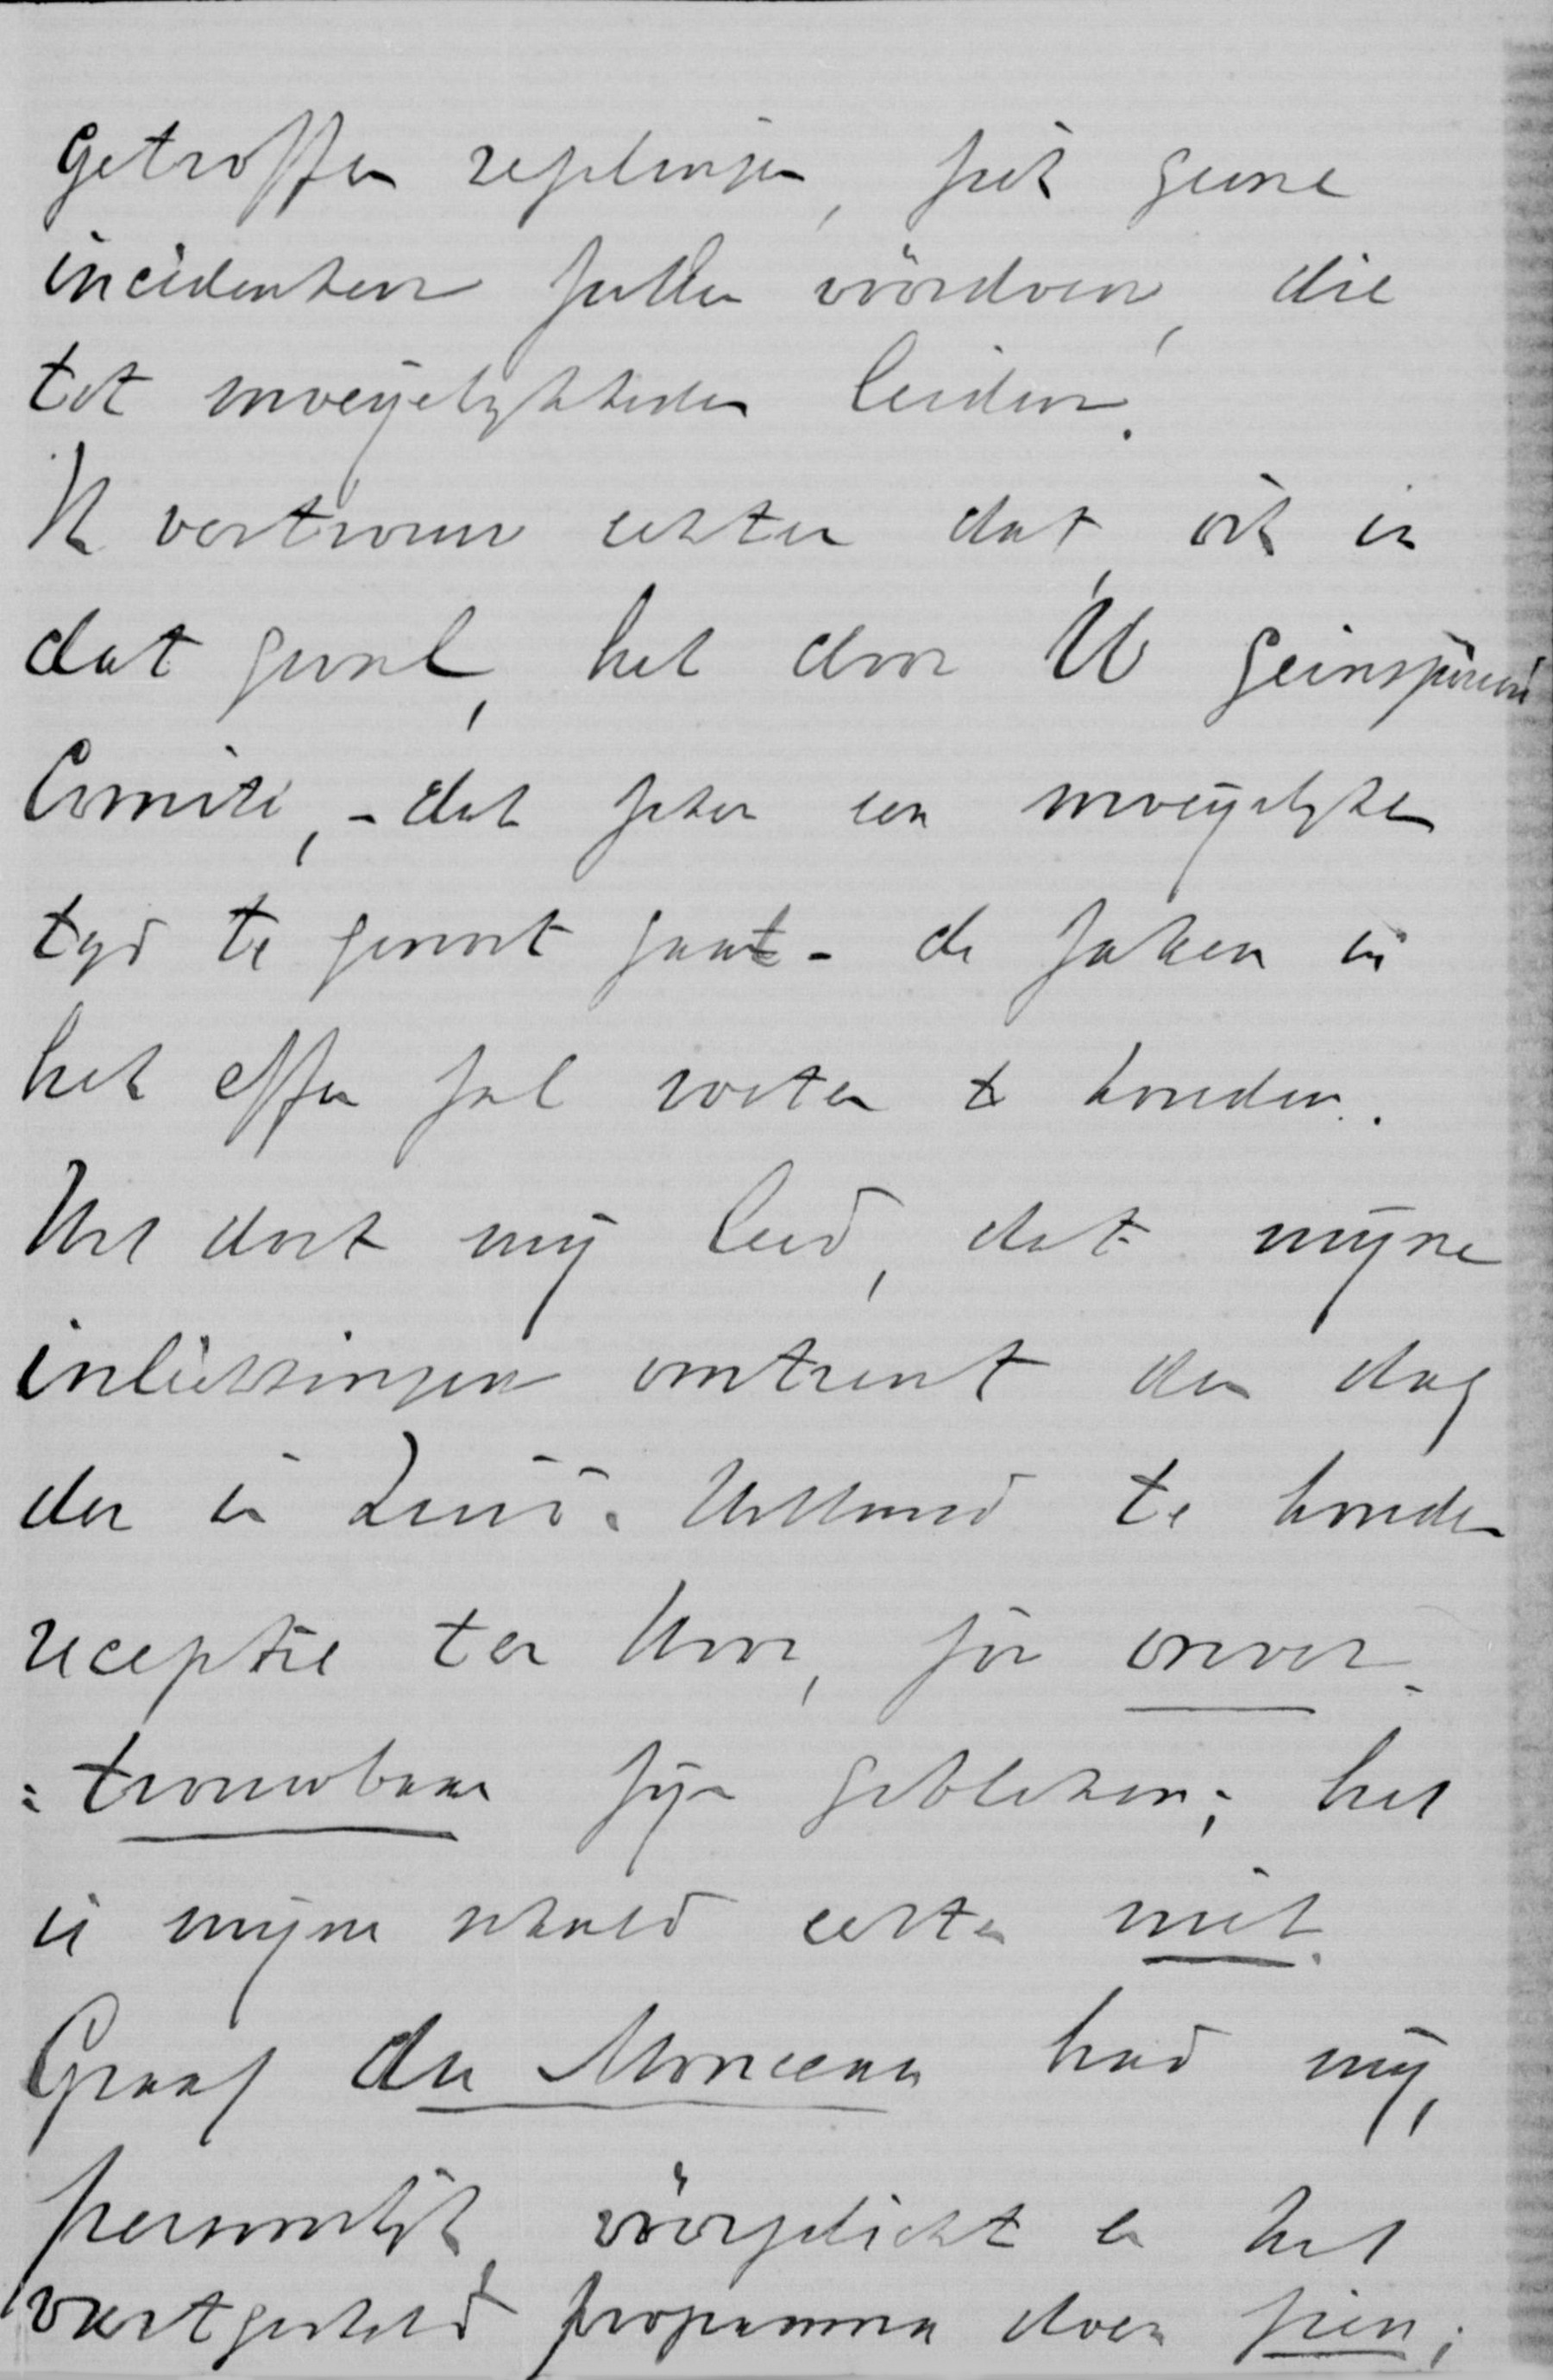 getroffen regelingen, zich geene
incidenten zullen voordoen, die
tot moeyelykheden leiden.
Ik vertrouw echter dat, ook in
dat geval, het door U geinspireerd
Comité, - dat zeker een moeyelyken
tyd te gemoet gaat - de zaken in
het effen zal weten te houden.
Het doet mij leed, dat mijne
inlichtingen omtrent den dag
der in Zuid-Holland te houden
receptie ten Hove, zoo onver-
=trouwbaar zijn gebleken; het
is mijne schuld echter niet.
Graaf du Monceau had mij,
persoonlijk, voorgelicht en het
vastgesteld programma doen zien;